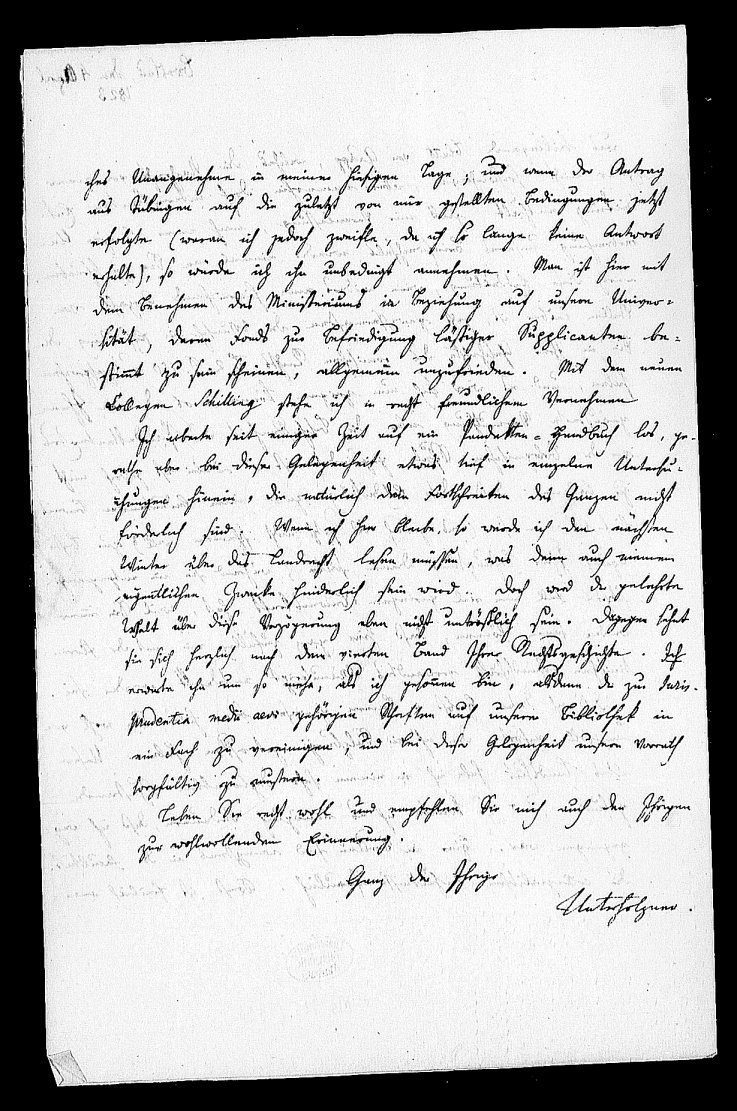 ches Unangenehme in meiner hiesigen Lage, und wenn der Antrag
aus Tübingen auf die zuletzt von mir gestellten Bedingungen jetzt
erfolgte (woran ich jedoch zweifle, da ich so lange keine Antwort
erhalte), so würde ich ihn unbedingt annehmen. Man ist hier mit
dem Benehmen des Ministeriums in Beziehung auf unsere Univer-
sität, deren Fonds zur Befriedigung lästiger Supplicanten be-
stimmt zu sein scheinen, allgemein unzufrieden. Mit dem neuen
Collegen Schilling stehe ich in recht freundlichem Vernehmen
Ich arbeite seit einiger Zeit auf ein Pandekten-Handbuch los, ge-
rathe aber bei dieser Gelegenheit etwas tief in einzelne Untersu-
chungen hinein, die natürlich dem Fortschreiten des Ganzen nicht
förderlich sind. Wenn ich hier bleibe, so werde ich den nächsten
Winter über das Landrecht lesen müssen, was denn auch meinem
eigentlichen Zwecke hinderlich sein wird. Doch wird die gelehrte
Welt über diese Verzögerung eben nicht untröstlich sein. Dagegen sehnt
sie sich herzlich nach dem vierten Band Ihrer Rechtsgeschichte. Ich
erwarte ihn um so mehr, als ich gesonnen bin, alsdann die zur Juris-
prudentia medii aevi gehörigen Schriften auf unserer Bibliothek in
ein Fach zu vereinigen, und bei dieser Gelegenheit unsern Vorrath
sorgfältig zu mustern.
Leben Sie recht wohl und empfehlen Sie mich auch den Ihrigen
zur wohlwollenden Erinnerung.
Ganz der Ihrige
Unterholzner.